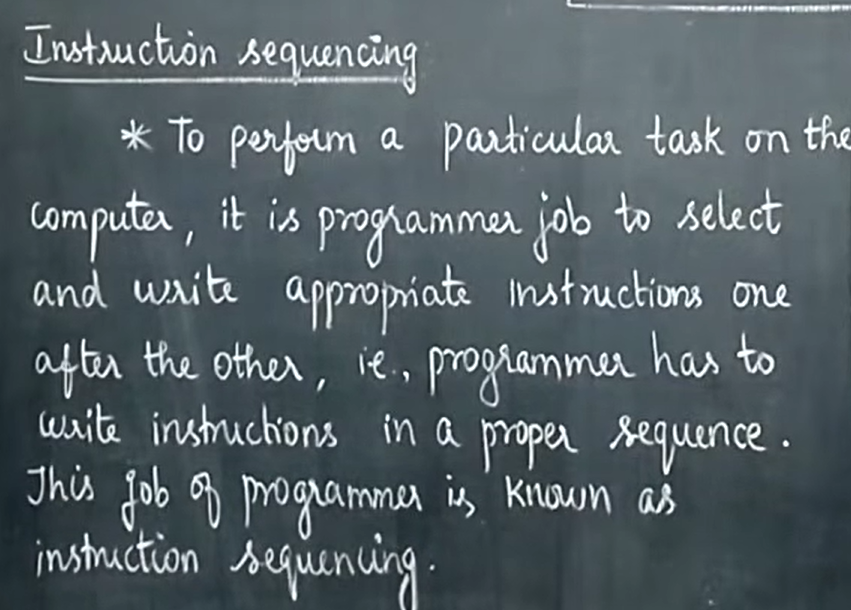 Instruction sequencing
* To perform a particular task on the
computer, it is programmer job to select
and write appropriate instructions one
after the other, ie., programmer has to
write instructions in a proper sequence.
This job of programmer is known as
instruction sequencing.